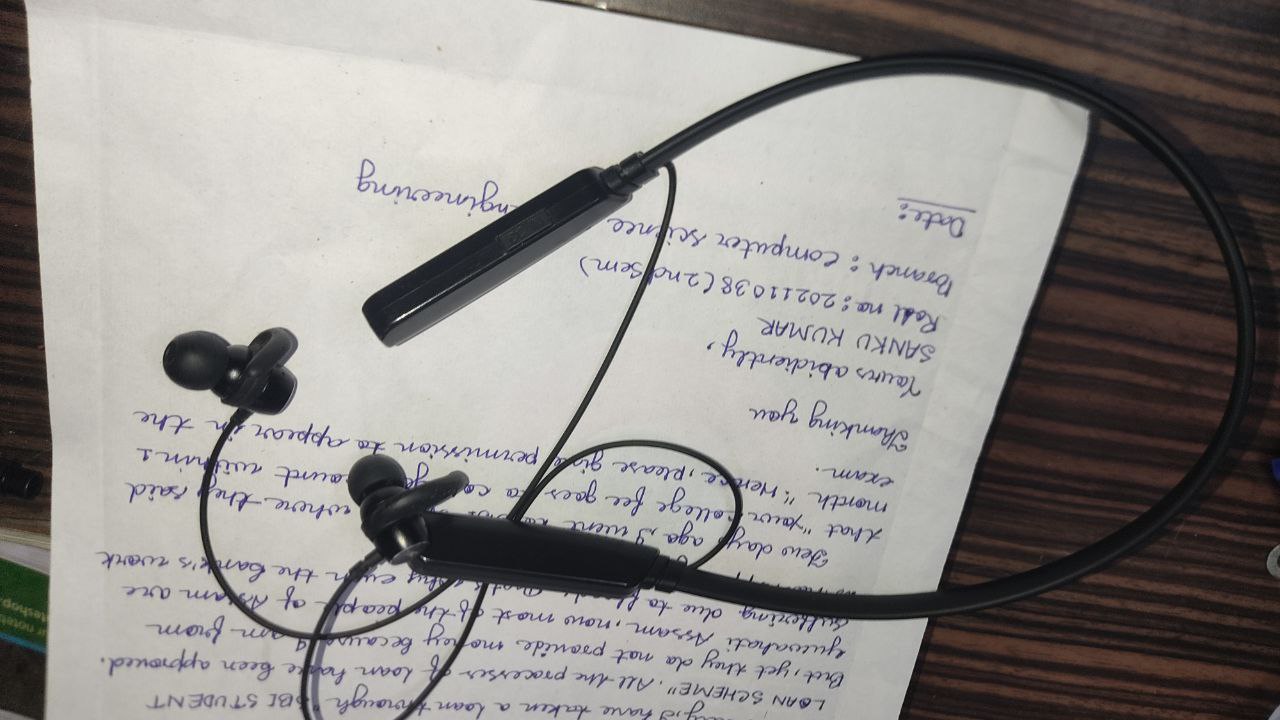 I have taken a loan through "SBI STUDENT
LOAN SCHEME". All the processes of loan have been approved.
But, yet they do not provide money because I am from
Guwahati Assam, now most of the people of Assam are
suffering due to why even the bank's work
Few days ago, I went where they said
that "your college fee goes to account within 1
month". Hence, please give permission to appear in the
exam.
Thanking you
Yours abidiently,
SANKU KUMAR
Roll no: 20211038 (2nd Sem)
Branch: Computer science ngineering
Date: